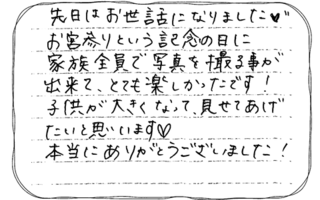 先日はお世話になりました♥
お宮参りという記念の日に
家族全員で写真を撮る事が
出来て、とても楽しかったです！
子供が大きくなって、見せてあげ
たいと思います♡
本当にありがとうございました！